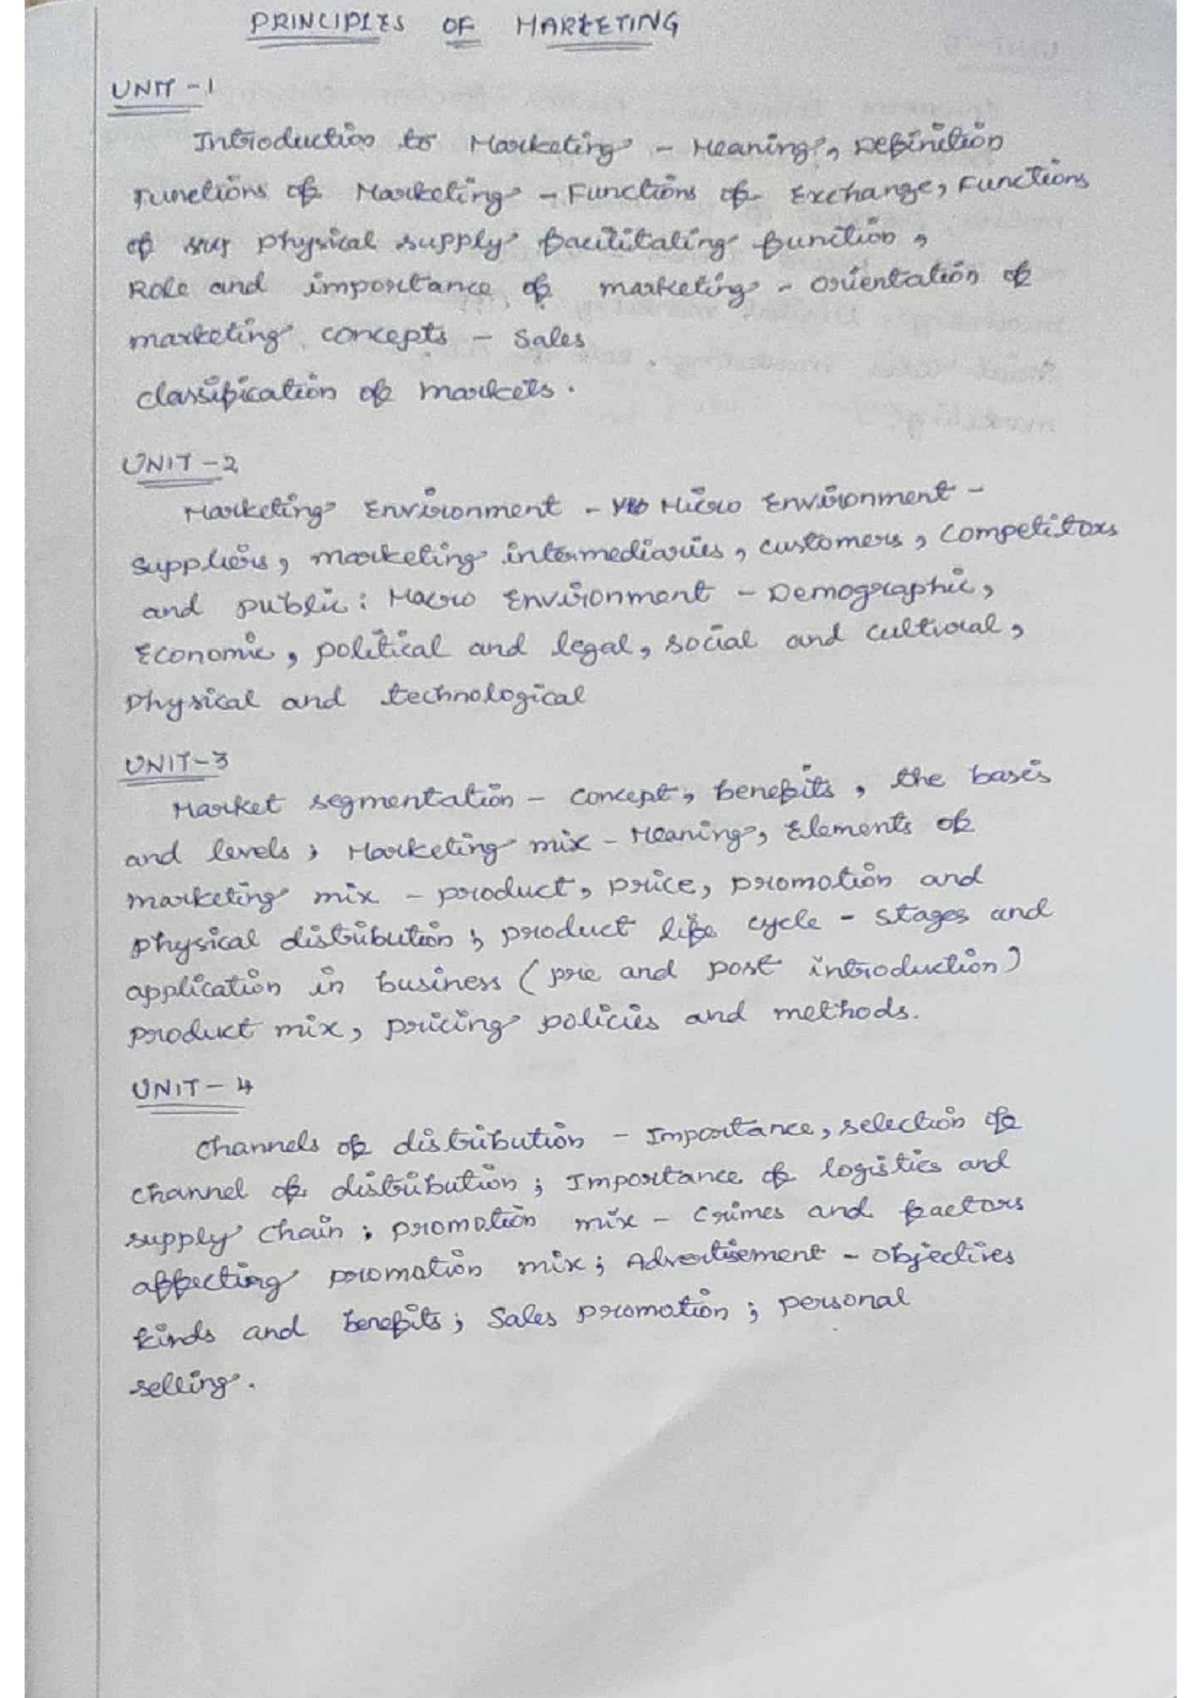 PRINCIPLES OF MARKETING
UNIT - 1
Introduction to Marketing - Meaning, Definition
Functions of Marketing - Functions of Exchange, Functions
of physical supply facilitating function,
Role and importance of marketing - orientation of
marketing concepts - Sales
classification of markets.
UNIT - 2
Marketing Environment - Micro Environment -
Suppliers, marketing intermediaries, customers, competitors
and public: Macro Environment - Demographic,
Economic, political and legal, social and cultural,
Physical and technological
UNIT-3
Market segmentation - concept, benefits, the bases
and levels; Marketing mix - Meaning, Elements of
marketing mix - product, price, promotion and
physical distribution; product life cycle - stages and
application in business (pre and post introduction)
product mix, pricing policies and methods.
UNIT - 4
Channels of distribution - Importance, selection of
channel of distribution; Importance of logistics and
supply chain; promotion mix - Crimes and factors
affecting promotion mix; Advertisement - objectives
kinds and benefits; Sales promotion; personal
selling.